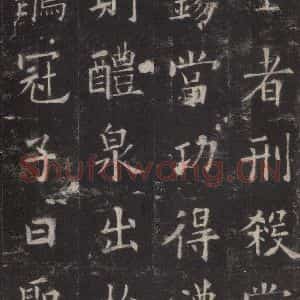 者刑殺當
錫當功得禮
則醴泉出於
鶡冠子曰聖
Shufawang.CN